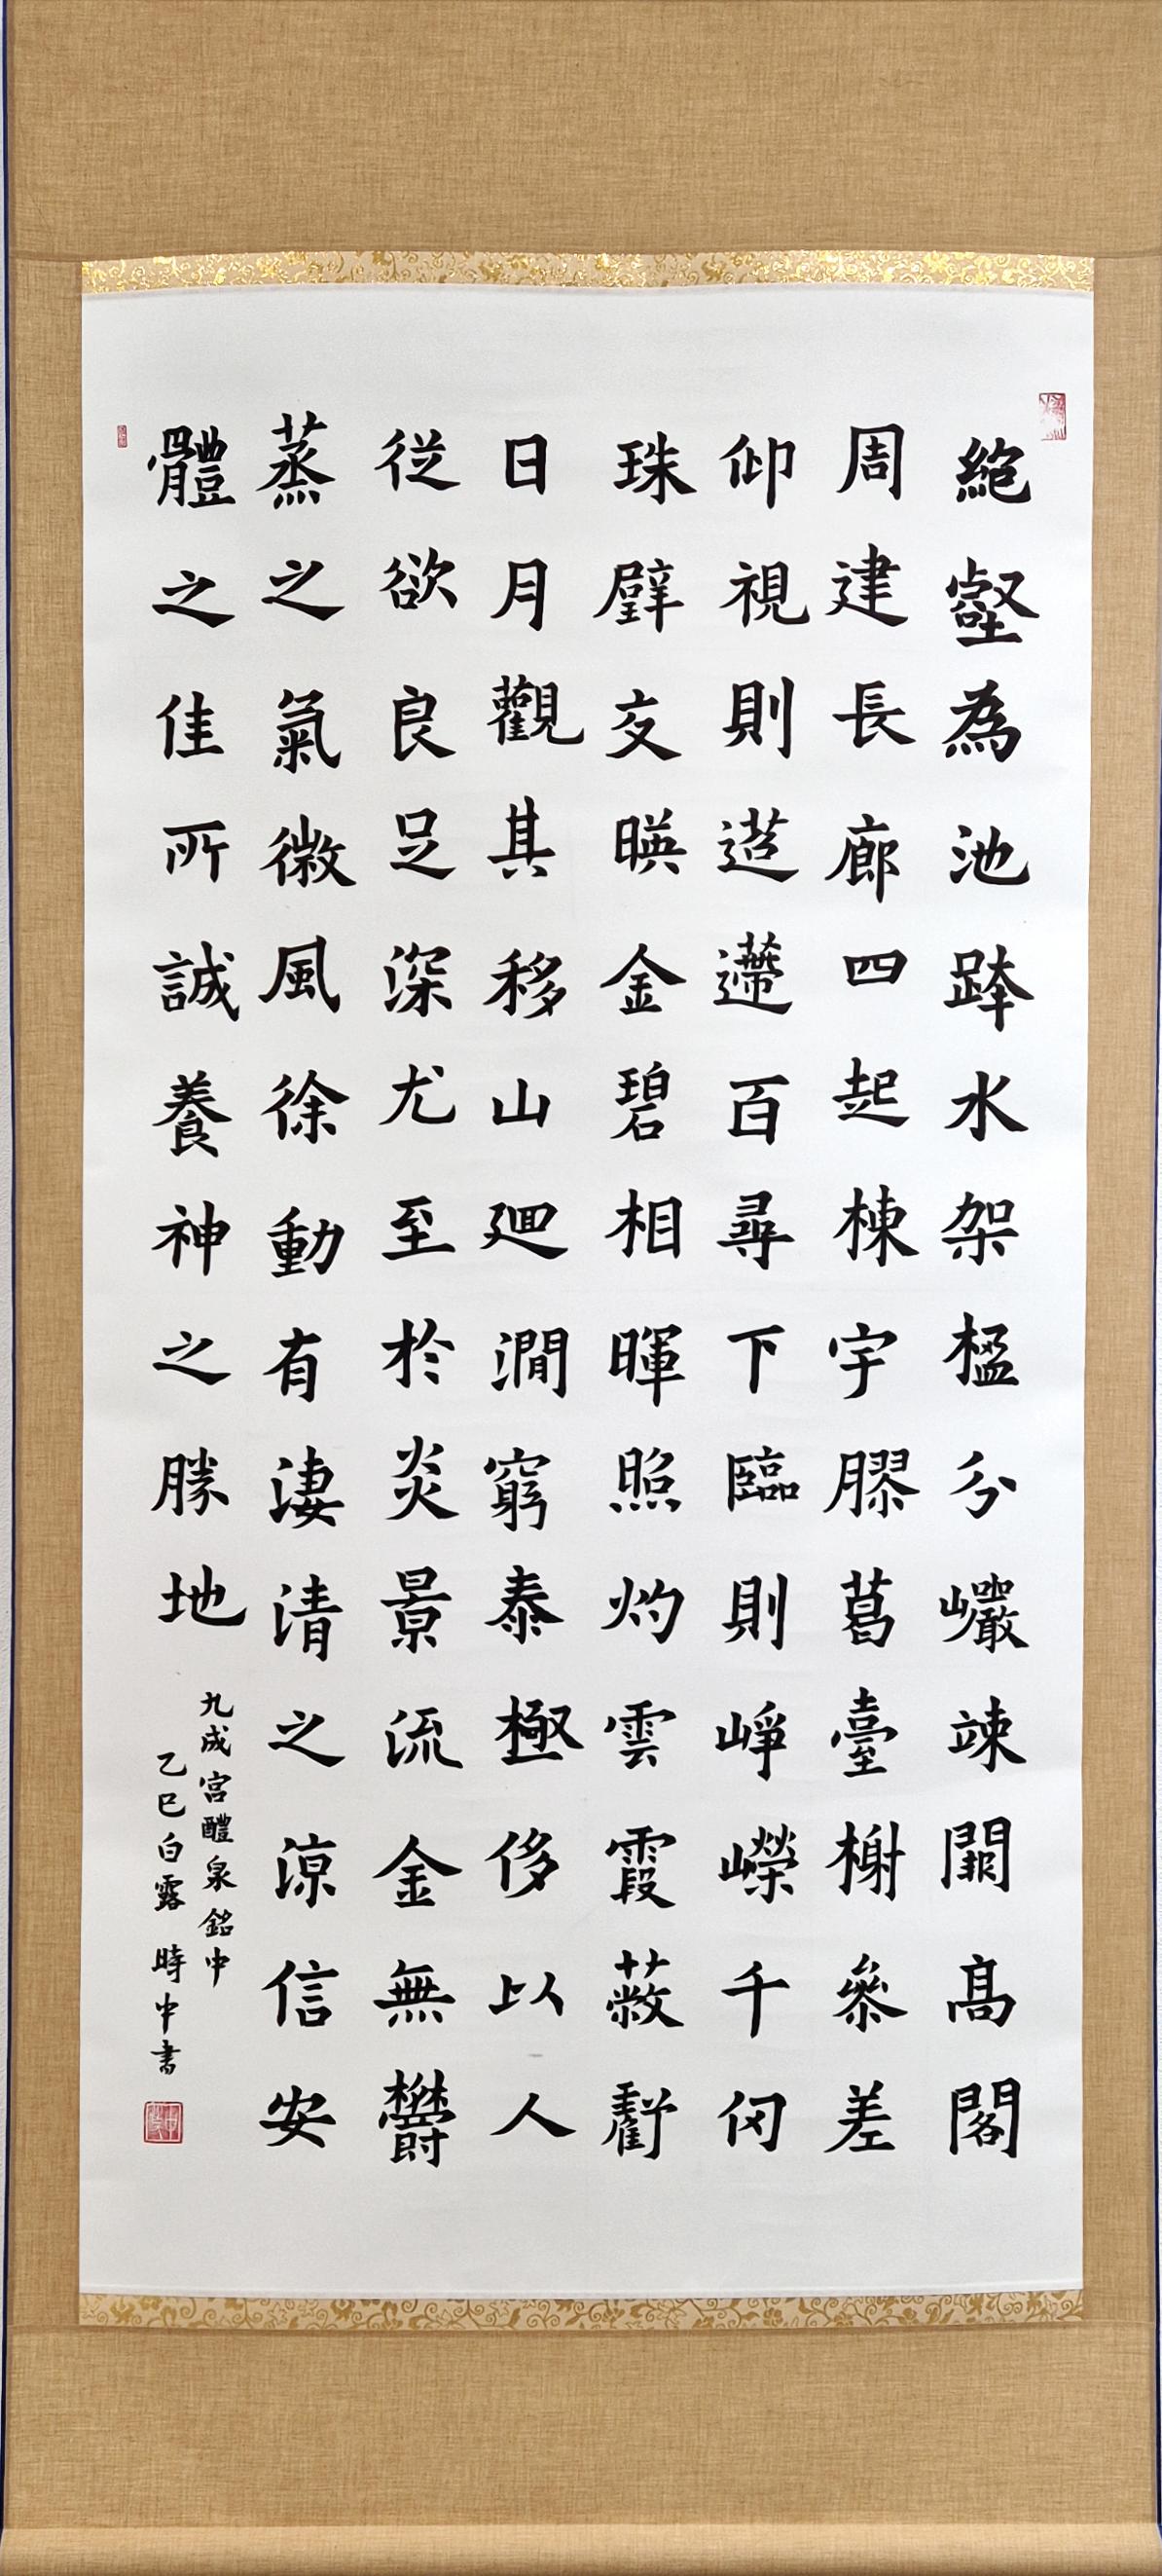 絙壑為池跨水架楹分巖竦闕髙閣
周建長廊四起棟宇膠葛臺榭叅差
仰視則迢遰百尋下臨則崢嶸千仞
珠璧交暎金碧相暉照灼雲霞蔽虧
日月觀其移山廻澗窮泰極侈以人
從欲良足深尤至於炎景流金無欝
蒸之氣微風徐動有淒清之涼信安
體之佳所誠養神之勝地
九成宮醴泉銘中
乙巳白露 時中書